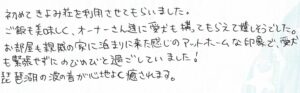 初めてきよみ荘を利用させてもらいました。
ご飯も美味しく、オーナーさん達に愛犬も構ってもらえて嬉しそうでした。
お部屋も親戚の家に泊まりに来た感じのアットホームな印象で、愛犬
も緊張せずにのびのびと過ごしていました!
琵琶湖の波の音が心地よく癒されます。